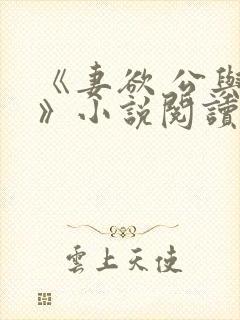 《妻欲 公與
》小說閱讀
雲上天使